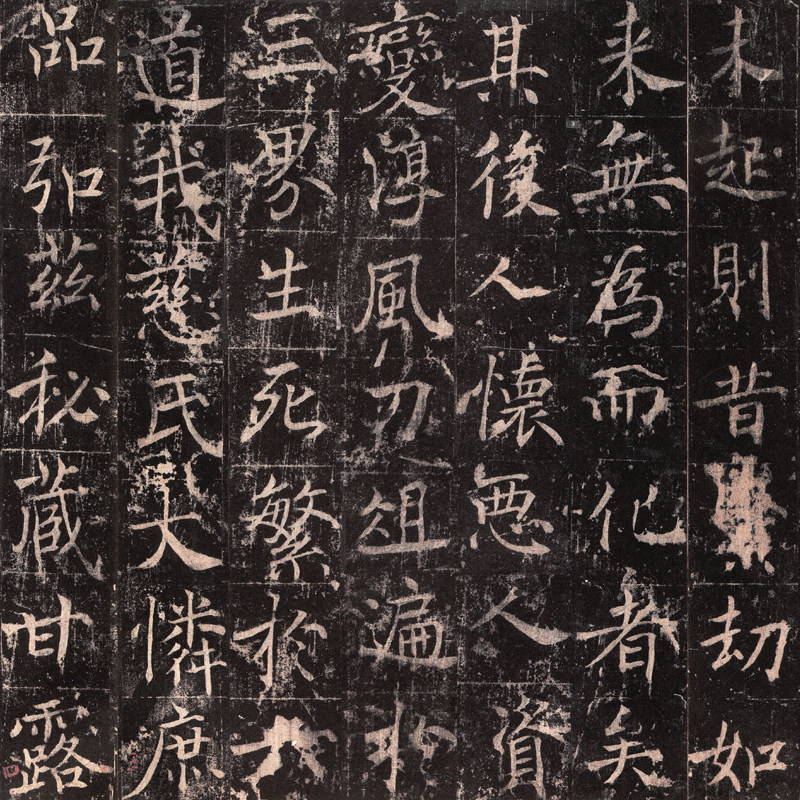 未起則昔劫如
来無為而化者矣
其後人懷悪人資
變淳風刀俎遍於
三界生死繁於六
道我慈氏大憐庶
品弘茲秘藏甘露